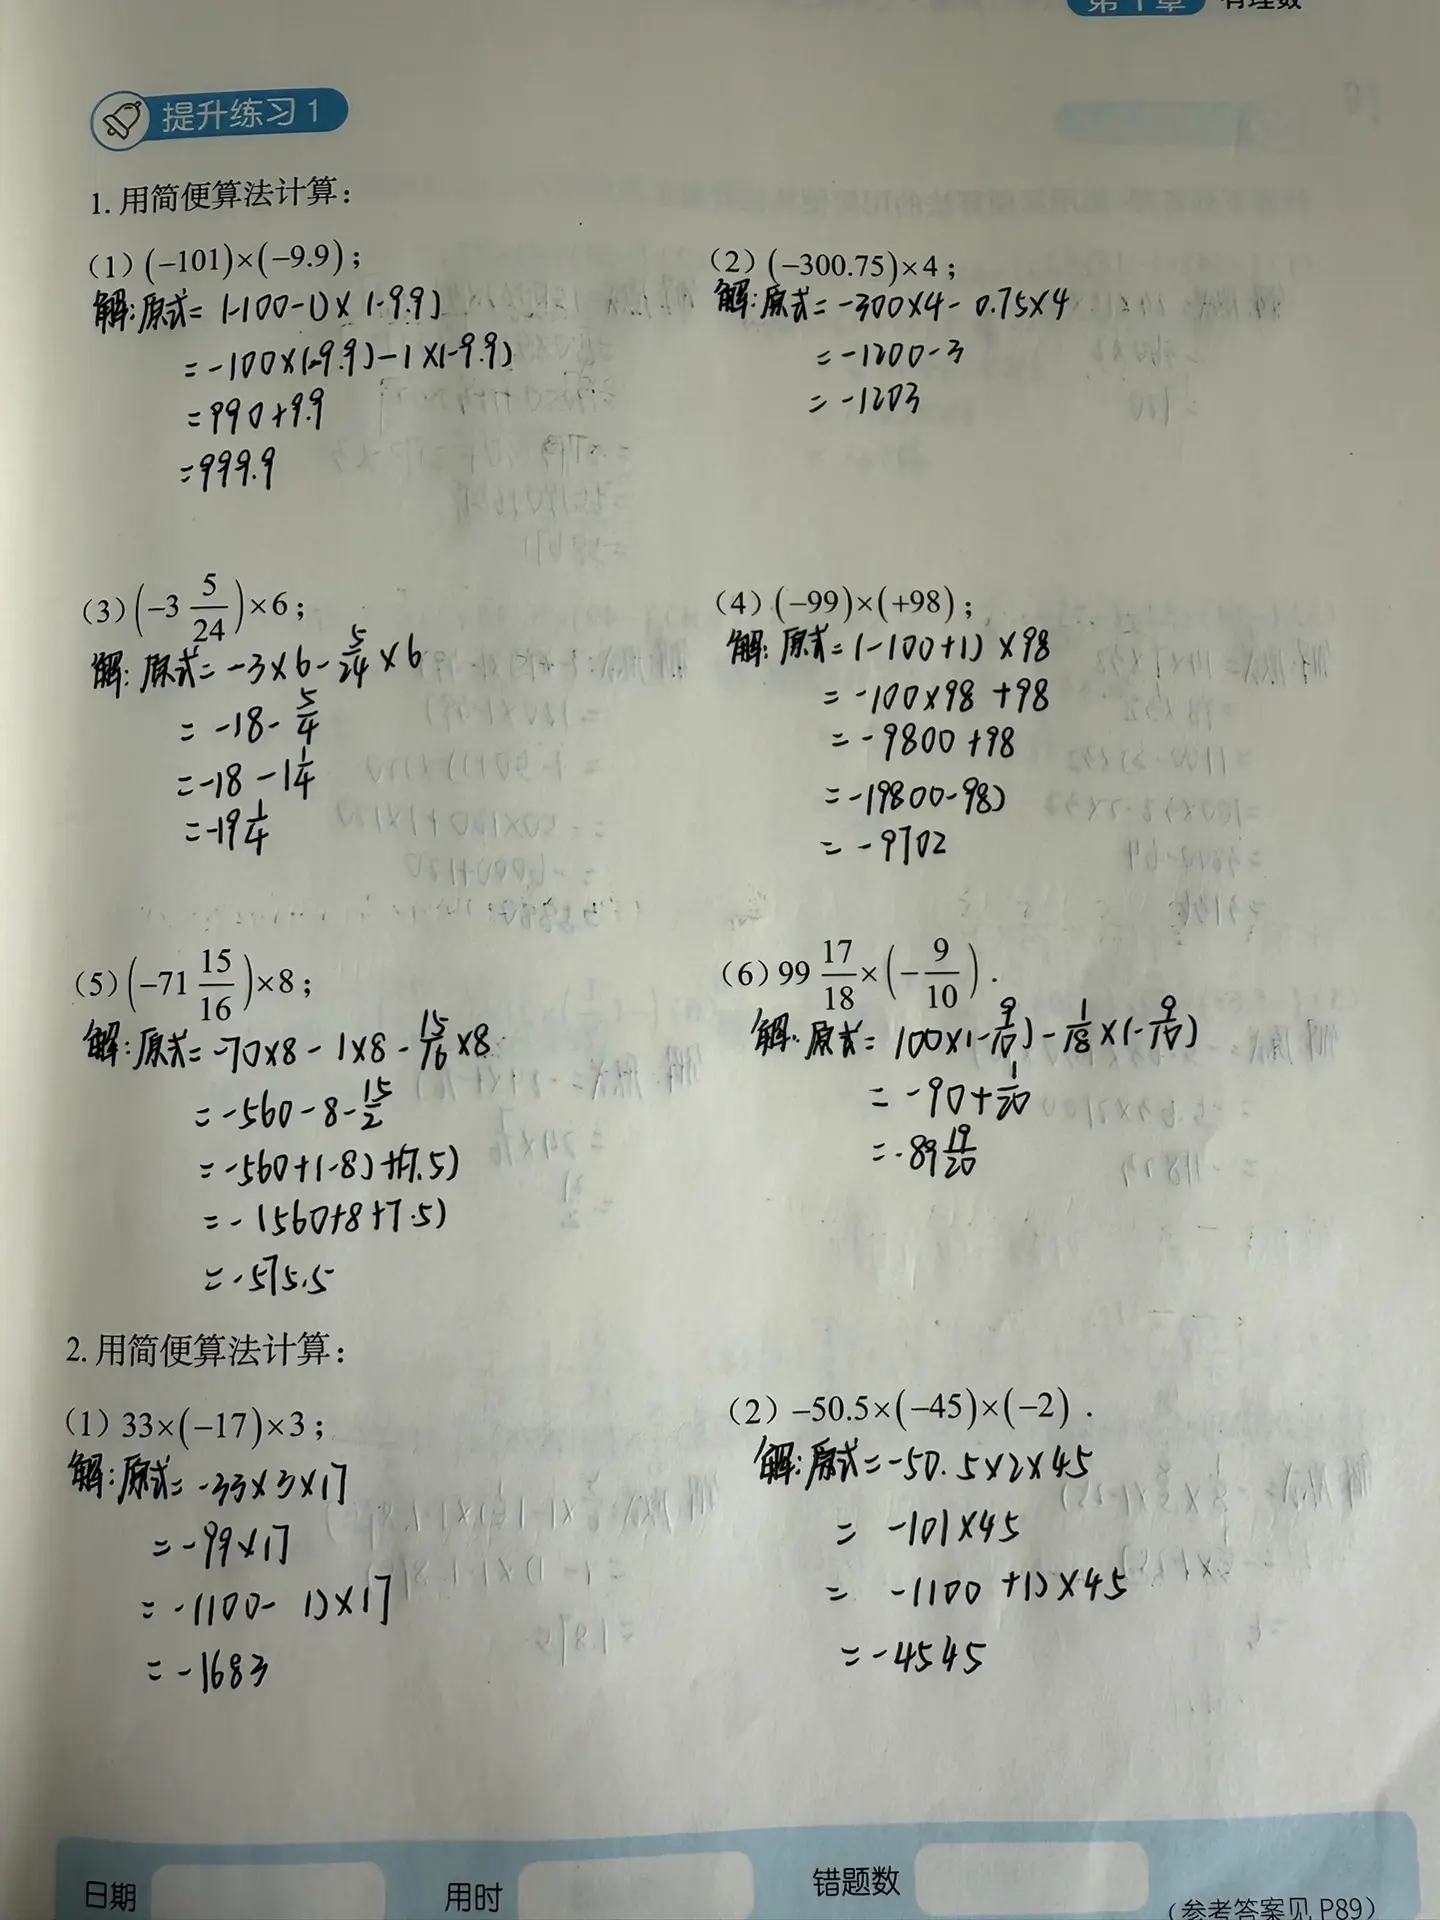 第1章 有理数
提升练习1
1. 用简便算法计算：
(1) (−101)×(−9.9)；
解:原式= (-100-1)×(-9.9)
= -100×(-9.9)-1×(-9.9)
=990+9.9
=999.9
(2) (−300.75)×4；
解:原式= -300×4- 0.75×4
= -1200-3
= -1203
(3) (−3 5/24)×6；
解:原式= -3×6- 5/24 ×6
= -18- 5/4
=-18 -1 1/4
=-19 1/4
(4) (−99)×(+98)；
解:原式= (-100+1) ×98
= -100×98 +98
= -9800 +98
= -(9800-98)
= -9702
(5) (−71 15/16)×8；
解:原式= -70×8 - 1×8 - 15/16 ×8
= -560-8- 15/2
= -560+(-8)+(-7.5)
= -(560+8+7.5)
= -575.5
(6) 99 17/18×(−9/10).
解:原式= 100×(-9/10)- 1/18 ×(-9/10)
= -90+ 1/20
= -89 19/20
2. 用简便算法计算：
(1) 33×(−17)×3；
解:原式= -33×3×17
= -99×17
= -(100- 1)×17
= -1683
(2) −50.5×(−45)×(−2).
解:原式=-50.5×2×45
= -101×45
= -(100 +1)×45
= -4545
日期 用时 错题数
(参考答案见 P89)